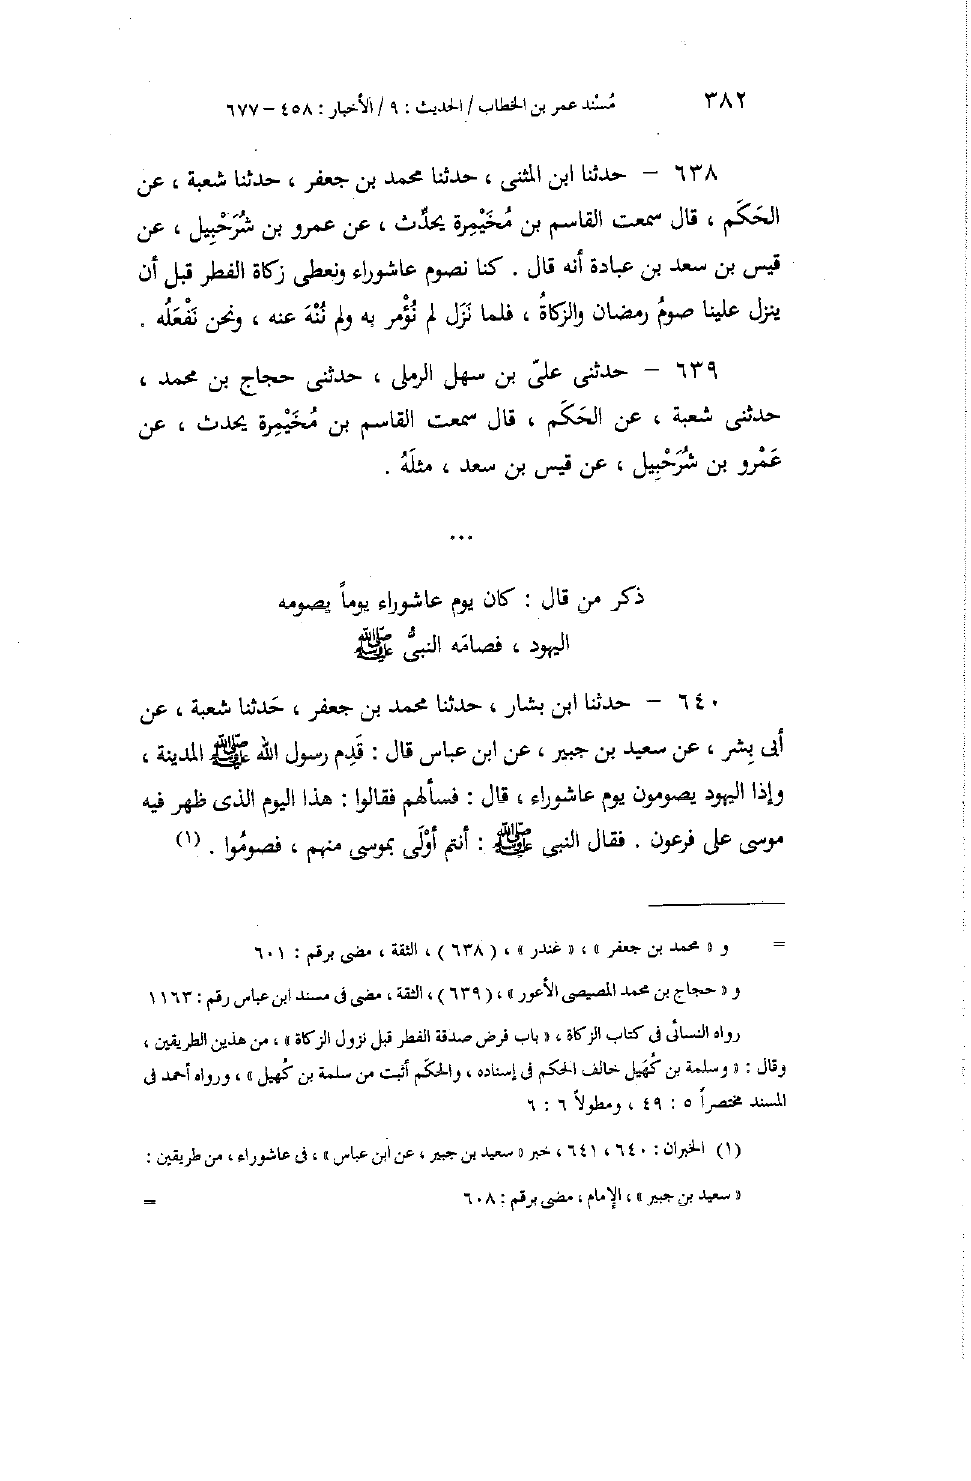 ٣٨٢ مُسْند عمر بن الخطاب / الحديث : ٩ / الأخبار : ٤٥٨ – ٦٧٧
٦٣٨ – حدثنا ابن المثنى ، حدثنا محمد بن جعفر ، حدثنا شعبة ، عن
الحَكَم ، قال سمعت القاسم بن مُخَيْمِرة يحدِّث ، عن عمرو بن شُرَحْبِيل ، عن
قيس بن سعد بن عبادة أنه قال . كنا نصوم عاشوراء ونعطى زكاة الفطر قبل أن
ينزل علينا صومُ رمضان والزكاةُ ، فلما نَزَل لم نُؤْمر به ولم نُنْهَ عنه ، ونحن نَفْعَلُه .
٦٣٩ – حدثنى علىّ بن سهل الرملى ، حدثنى حجاج بن محمد ،
حدثنى شعبة ، عن الحَكَم ، قال سمعت القاسم بن مُخَيْمِرة يحدث ، عن
عَمْرو بن شُرَحْبِيل ، عن قيس بن سعد ، مثلَهُ .
...
ذكر من قال : كان يوم عاشوراء يوماً يصومه
اليهود ، فصامَه النبىُّ ﷺ
٦٤٠ – حدثنا ابن بشار ، حدثنا محمد بن جعفر ، حَدثنا شعبة ، عن
أبى بِشر ، عن سعيد بن جبير ، عن ابن عباس قال : قَدِم رسول الله ﷺ المدينة ،
وإذا اليهود يصومون يوم عاشوراء ، قال : فسألهم فقالوا : هذا اليوم الذى ظهر فيه
موسى على فرعون . فقال النبى ﷺ : أنتم أوْلَى بموسى منهم ، فصومُوا . (١)
= و « محمد بن جعفر » ، « غندر » ، (٦٣٨) ، الثقة ، مضى برقم : ٦٠١
و « حجاج بن محمد المصيصى الأعور » ، (٦٣٩) ، الثقة ، مضى فى مسند ابن عباس رقم : ١١٦٣
رواه النسائى فى كتاب الزكاة ، « باب فرض صدقة الفطر قبل نزول الزكاة » ، من هذين الطريقين ،
وقال : « وسلمة بن كُهَيل خالف الحكم فى إسناده ، والحكَم أثبت من سلمة بن كُهيل » ، ورواه أحمد فى
المسند مختصراً ٥ : ٤٩ ، ومطولاً ٦ : ٦
(١) الخبران : ٦٤٠ ، ٦٤١ ، خبر « سعيد بن جبير ، عن ابن عباس » ، فى عاشوراء ، من طريقين :
« سعيد بن جبير » ، الإمام ، مضى برقم : ٦٠٨ =